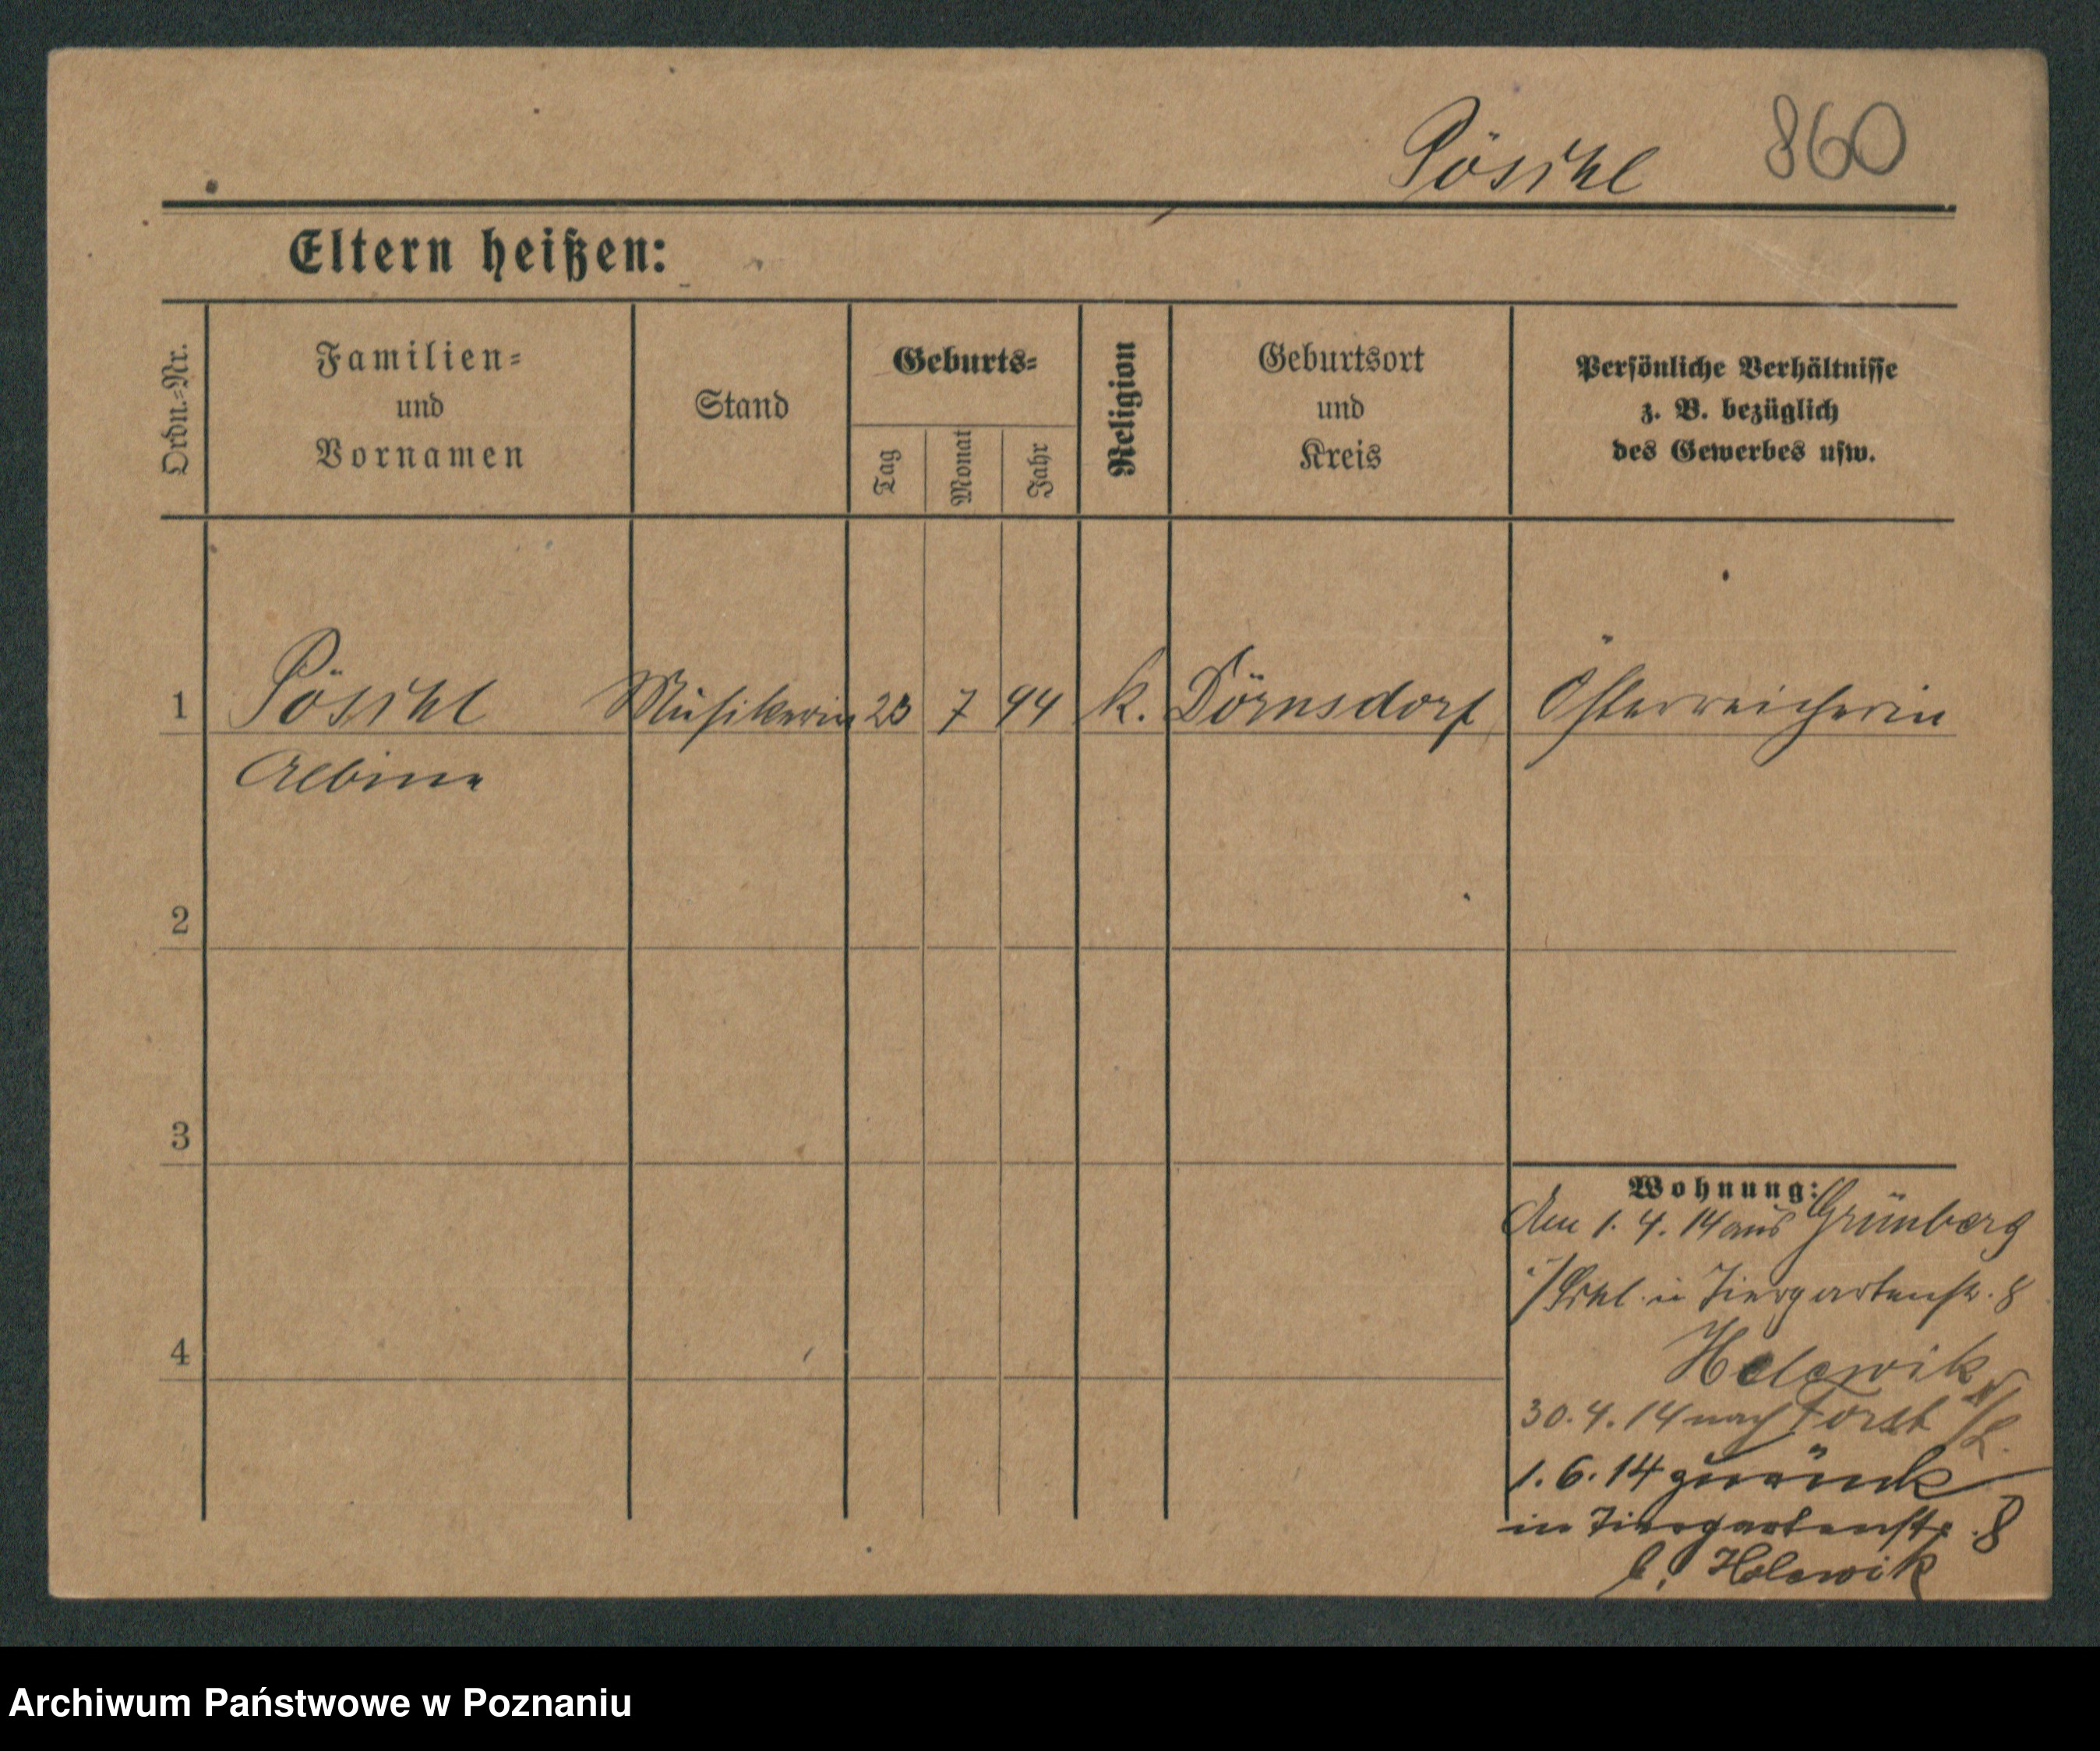 Pöschl 860
Eltern heißen:
Ordn.=Nr.
Familien=
und
Vornamen
Stand
Geburts=
Tag
Monat
Jahr
Religion
Geburtsort
und
Kreis
Persönliche Verhältnisse
z. B. bezüglich
des Gewerbes usw.
1 Pöschl Musikerin 23 7 94 k. Dörnsdorf Österreicherin
Albina
2
3
4
Wohnung:
Am 1. 4. 14 aus Grünberg
i/Schl. in Tiergartenstr. 8
30. 4. 14 nach Forst N/L.
1. 6. 14 zurück
in Tiergartenstr. 8
b. Holewik
Archiwum Państwowe w Poznaniu